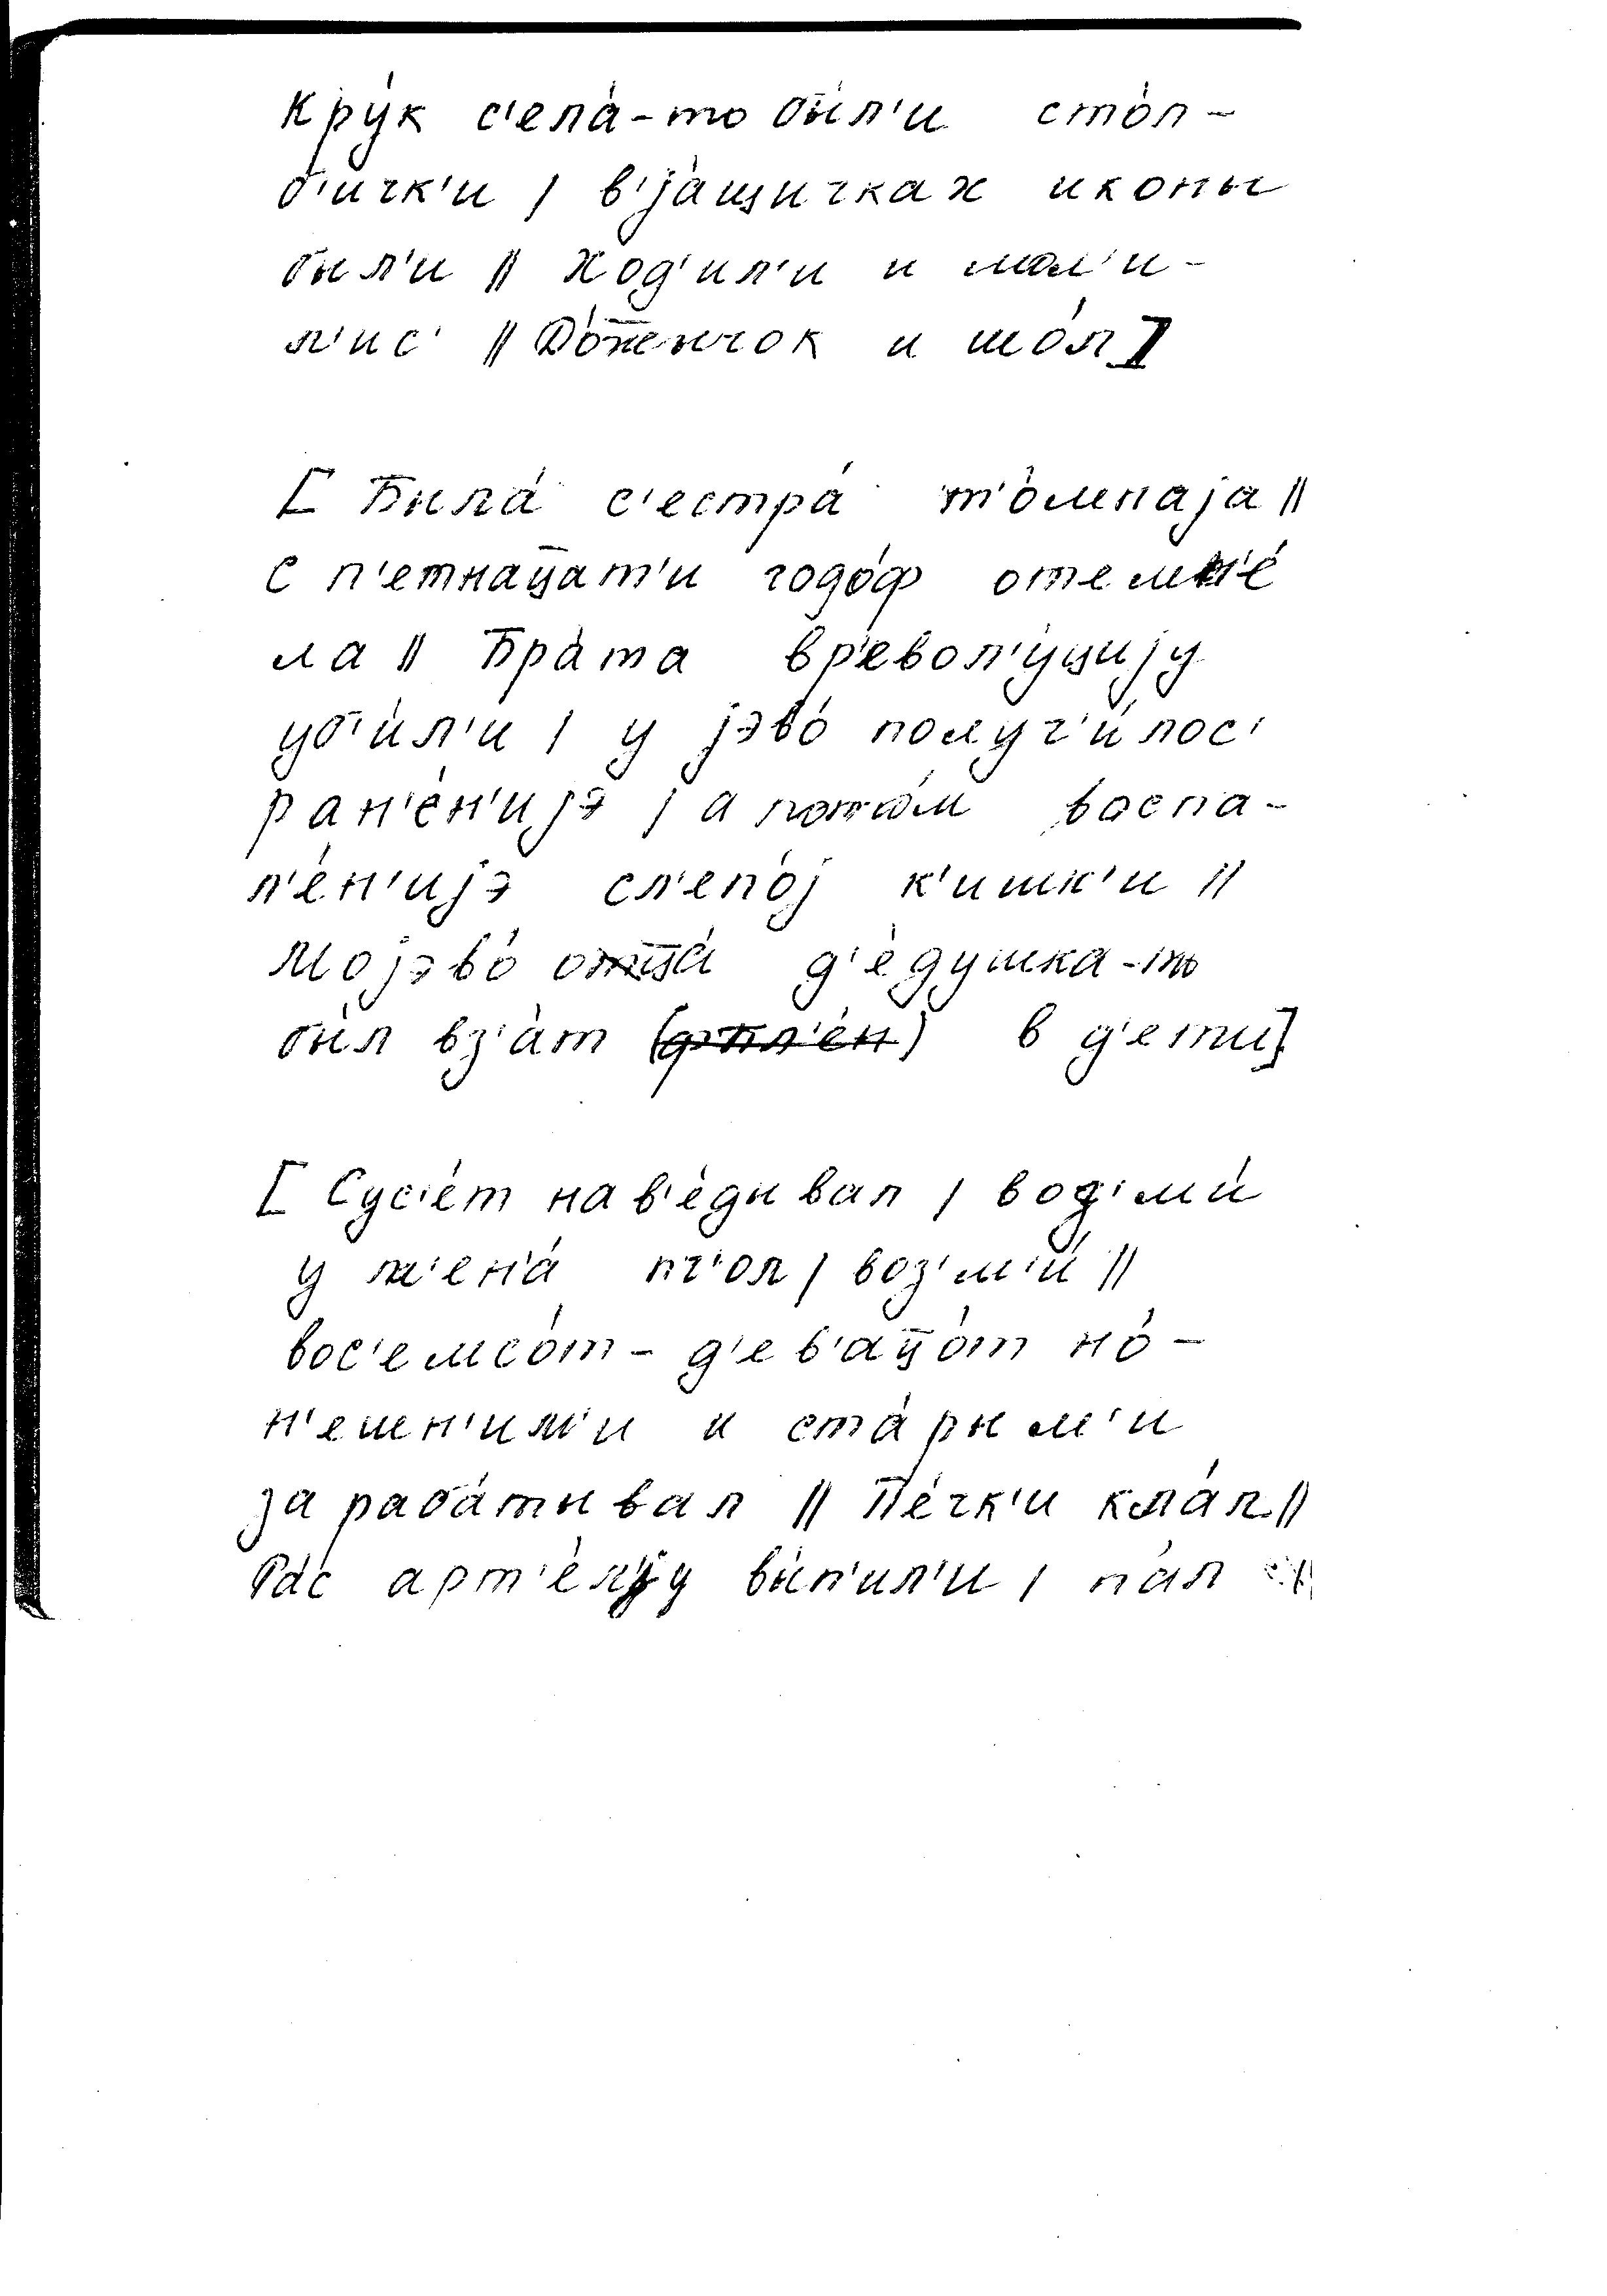 Кру́к с'ела́-то бы́л'и сто́л-
б'ичк'и / в'jа́щичках иконы
был'и // Ход'ил'и и мол'и-
л'ис' // До́т̅енчок и шо́л]
[ Была́ с'естра́ т'о́мнаjа //
С п'етнац̅ат'и годо́ф отемн'е́
ла // Бра́та вр'евол'у́цийу
уб'и́л'и / у jэво́ получ'и́лос'
ран'е́н'иjэ / а пото́м воспа-
л'е́н'иjэ сл'епо́j к'ишк'и //
Моjэво́ отца́ д'е́душка-то
бы́л вз'а́т (фпл'е́н) в д'ети]
[ Сус'е́т нав'е́дывал / воз'ми́
у м'ен'а́ пч'ол / воз'м'и́ //
вос'емсо́т- д'ев'ац̅о́т но́-
н'ешн'им'и и ста́рым'и
зараба́тывал // Пе́чк'и кла́л //
Ра́с арт'е́л'jу вы́п'ил'и / па́л